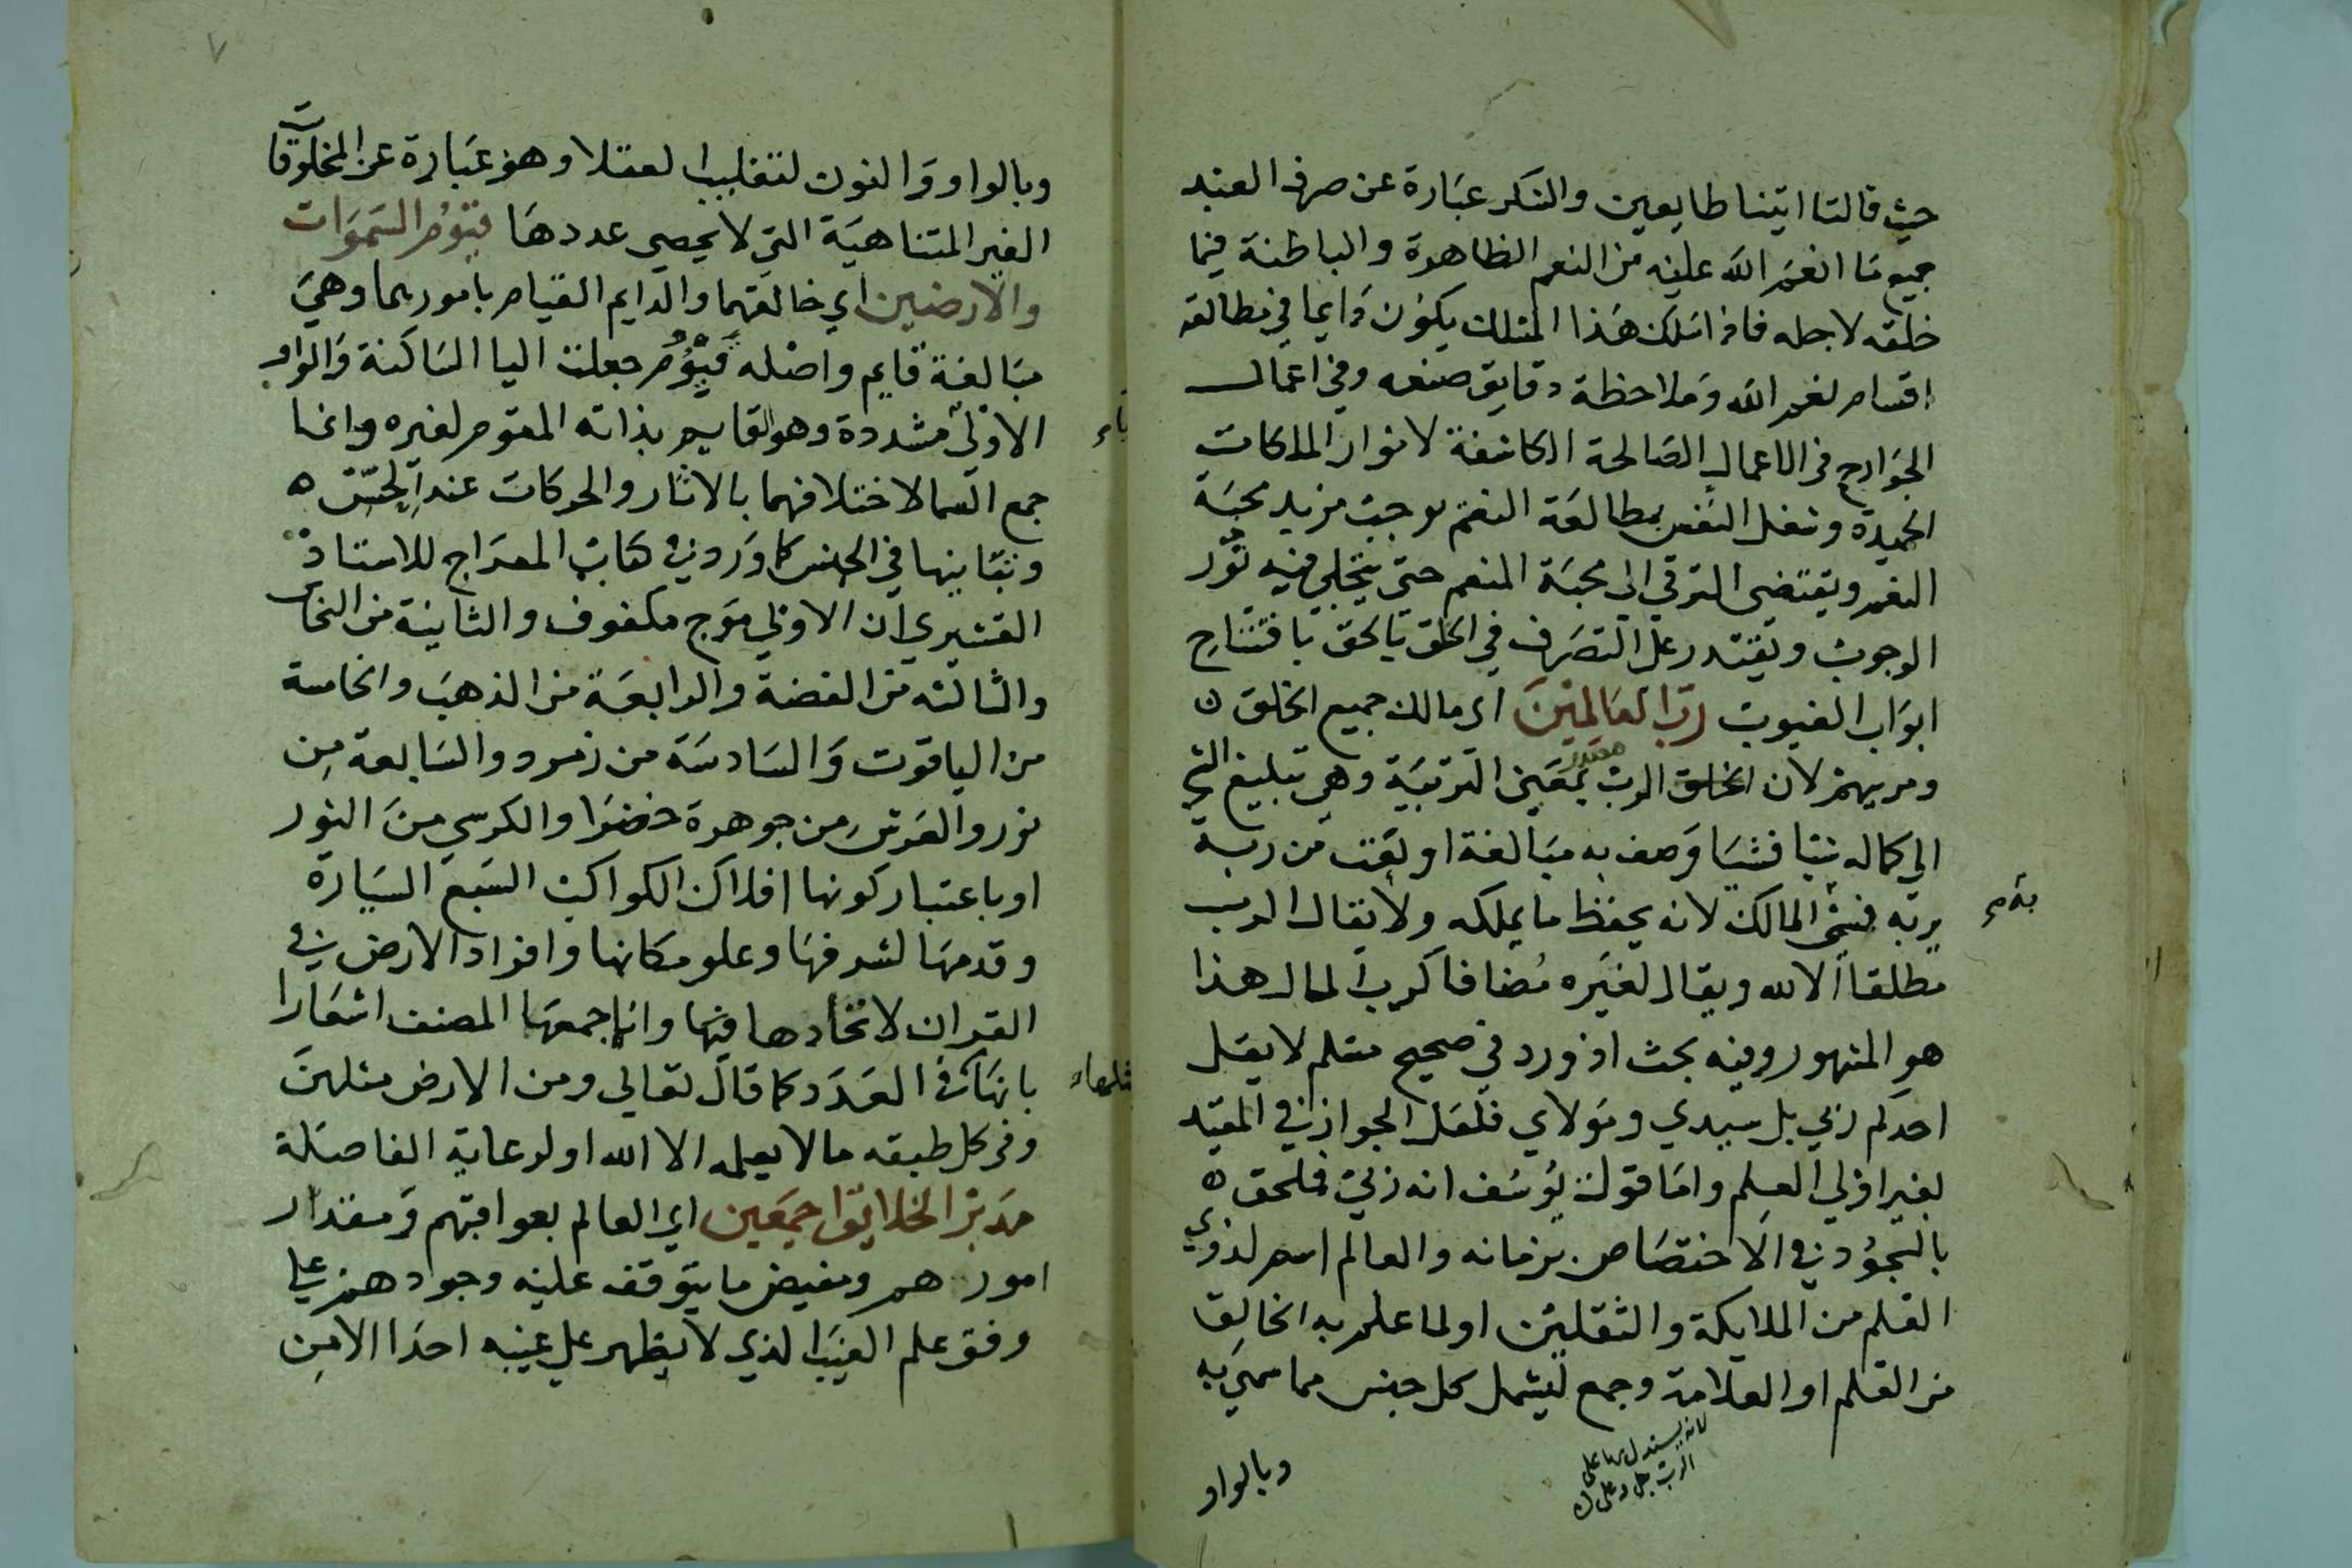 حيث قالتا اتينا طايعين والشكر عبارة عن صرف العبد
جميع ما انعم الله عليه من النعم الظاهرة والباطنة فيما
خلقه لاجله فاذا سلك هذا المسلك يكون دايما في مطالعة
اقسام لنعم الله وملاحظة دقايق صنعه وفي اعمال
الجوارح في الاعمال الصالحة الكاشفة لانوار الملكات
الحميدة وشغل النفس بمطالعة النعم يوجب مزيد محبة
النعم ويقتضي الترقي الى محبة المنعم حتى يتجلي فيه نور
الوجوب ويقتدر على التصرف في الخلق بالحق بافتتاح
ابواب الغيوب رب العالمين اي مالك جميع الخلق ه
ومربيهم لان الخلق الرب مصدر بمعني التربية وهي تبليغ الشي
الي كماله شيا فشيا وصف به مبالغة او نعت من ربه
يربه فسمي المالك لانه يحفظ ما يملكه ولا يقال الرب
به م
مطلقا الا لله ويقال لغيره مضافا كرب المال هذا
هو المشهور وفيه بحث اذ ورد في صحيح مسلم لا يقل
احدكم ربي بل سيدي ومولاي فلعل الجواز في المقيد
لغير اولي العلم واما قول يوسف انه ربي فملحق ه
بالسجود في الاختصاص بزمانه والعالم اسم لذوي
العلم من الملايكة والثقلين او لما علم به الخالق
من العلم او العلامة وجمع ليشمل كل جنس مما سمي به
لانه يستدل بها على
الرب جل وعلى ه
وبالواو
٧
وبالواو والنون لتغليب العقلا وهو عبارة عن المخلوقات
الغير المتناهية التي لا يحصي عددها قيوم السموات
والارضين اي خالقهما والدايم القيام بامورهما وهي
مبالغة قايم واصله قيووم جعلت اليا الساكنة والواو
الاولى مشددة وهو القايم بذاته المقوم لغيره وانما
ياء
جمع السما لاختلافهما بالاثار والحركات عند الحس ه
وتباينها في الجنس كما ورد في كتاب المعراج للاستاذ
القشيري ان الاولي موج مكفوف والثانية من النحاس
والثالثه من الفضة والرابعة من الذهب والخامسة
من الياقوت والسادسة من زمرد والسابعة من
نور والعرش من جوهرة خضرا والكرسي من النور
او باعتبار كونها افلاك الكواكب السبع السيارة
وقدمها لشرفها وعلو مكانها وافراد الارض في
القران لاتحادها فيها وانما جمعها المصنف اشعارا
بانها في العدد كما قال تعالي ومن الارض مثلهن
مثلها
وفي كل طبقه ما لا يعلمه الا الله او لرعاية الفاصلة
مدبر الخلايق اجمعين اي العالم بعواقبهم ومقدار
امورهم ومفيض ما يتوقف عليه وجودهم علي
وفق علم الغيب الذي لا يظهر علي غيبه احدا الا من